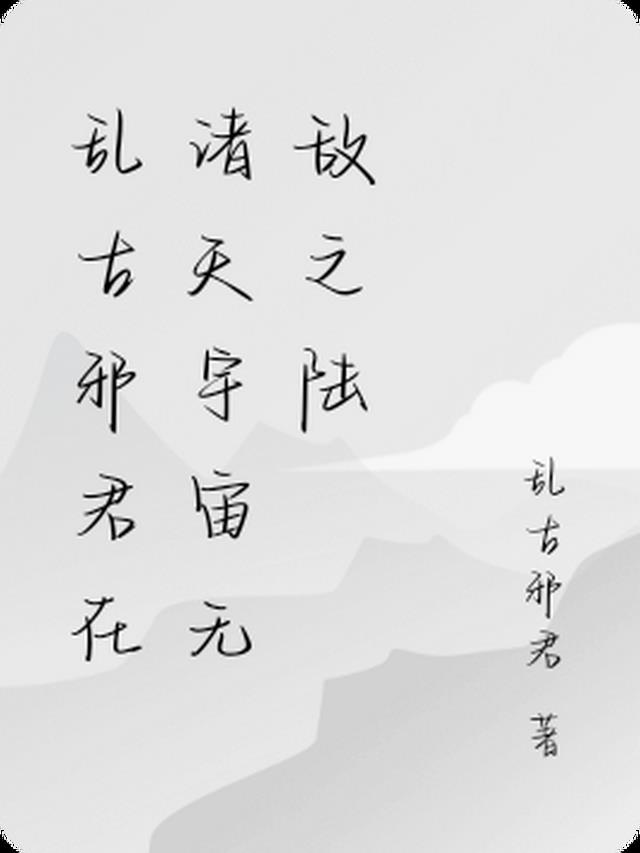 乱古邪君在
渚天宇宙无
敌之陆
乱古邪君 著